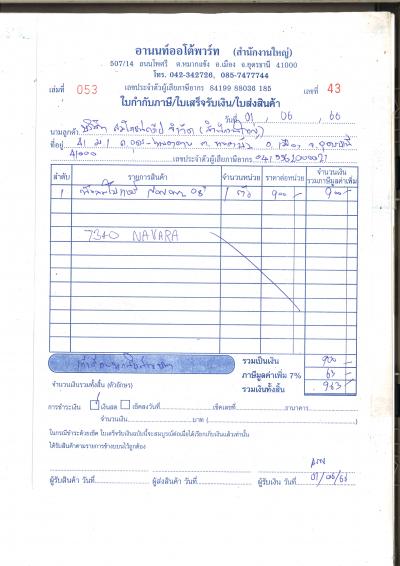 อานนท์ออโต้พาร์ท (สำนักงานใหญ่)
507/14 ถนนโพศรี ต.หมากแข้ง อ.เมือง จ.อุดรธานี 41000
โทร. 042-342726, 085-7477744
เล่มที่ 053 เลขประจำตัวผู้เสียภาษีอากร 84199 88036 185 เลขที่ 43
ใบกำกับภาษี/ใบเสร็จรับเงิน/ใบส่งสินค้า
วันที่ 01 06 66
นามลูกค้า บริษัท จำกัด (สำนักงานใหญ่)
ที่อยู่ 41 ม 1 ถ.อุดร- ต. อ.เมือง จ.อุดรธานี
41000 เลขประจำตัวผู้เสียภาษีอากร
ลำดับ รายการสินค้า จำนวนหน่วย ราคาต่อหน่วย จำนวนเงินรวมภาษีมูลค่าเพิ่ม
1 1 ตัว 900 - 900 -
7340 NAVARA
รวมเป็นเงิน 900 -
ภาษีมูลค่าเพิ่ม 7% 63 -
จำนวนเงินรวมทั้งสิ้น (ตัวอักษร) รวมเงินทั้งสิ้น 963 -
การชำระเงิน เงินสด เช็คลงวันที่ เช็คเลขที่ ธนาคาร
จำนวนเงิน บาท ( )
ในกรณีชำระด้วยเช็ค ใบเสร็จรับเงินฉบับนี้จะสมบูรณ์ต่อเมื่อได้เรียกเก็บเงินแล้วเท่านั้น
ได้รับสินค้าตามรายการข้างบนไว้ถูกต้อง
ผู้รับสินค้า วันที่ ผู้ส่งสินค้า วันที่ ผู้รับเงิน วันที่ 01/06/66